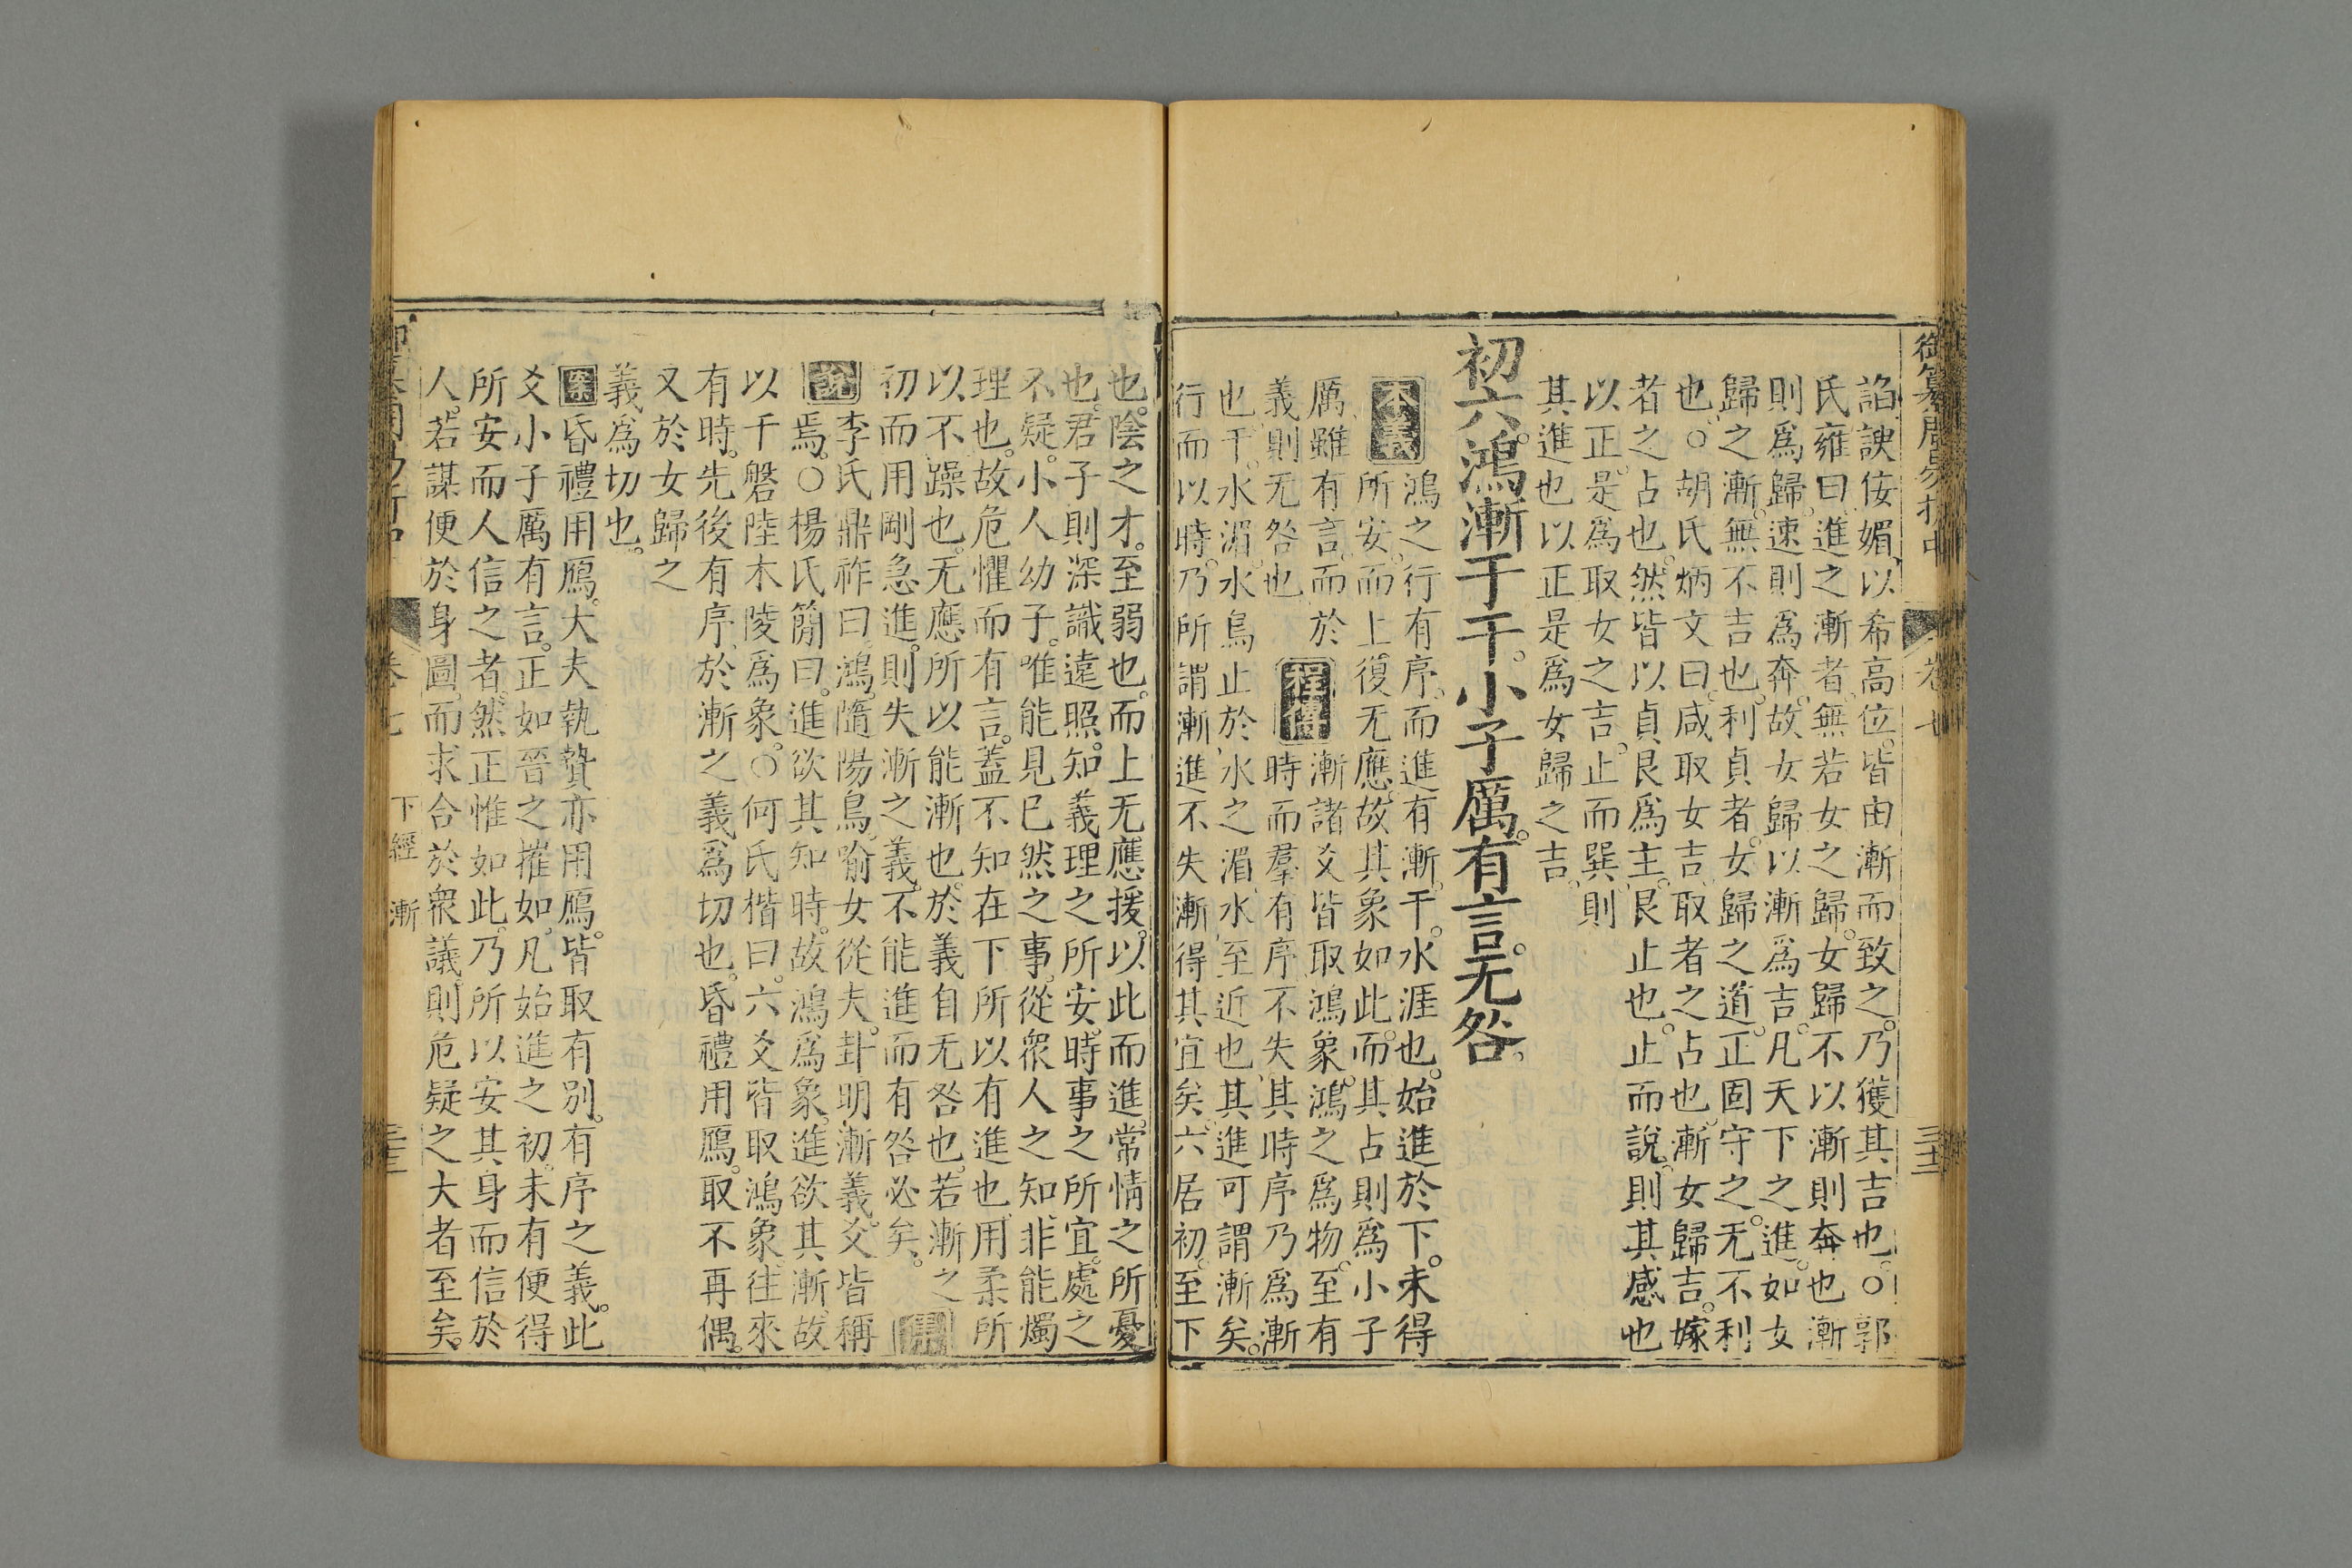 諂諛佞媚以希高位皆由漸而致之乃獲其吉也○郭
氏雍曰進之漸者無若女之歸女歸不以漸則奔也漸
則爲歸速則爲奔故女歸以漸爲吉凡天下之進如女
歸之漸無不吉也利貞者女歸之道正固守之无不利
也○胡氏炳文曰咸取女吉取者之占也漸女歸吉嫁
者之占也然皆以貞艮爲主艮止也止而說則其感也
以正是爲取女之吉止而巽則
其進也以正是爲女歸之吉
初六鴻漸于干小子厲有言无咎
本義 鴻之行有序而進有漸干水涯也始進於下未得
所安而上復无應故其象如此而其占則爲小子
厲雖有言而於
義則无咎也
程傳 漸諸爻皆取鴻象鴻之爲物至有
時而羣有序不失其時序乃爲漸
也干水湄水鳥止於水之湄水至近也其進可謂漸矣
行而以時乃所謂漸進不失漸得其宜矣六居初至下
也陰之才至弱也而上无應援以此而進常情之所憂
也君子則深識遠照知義理之所安時事之所宜處之
不疑小人幼子唯能見已然之事從衆人之知非能燭
理也故危懼而有言蓋不知在下所以有進也用柔所
以不躁也无應所以能漸也於義自无咎也若漸之
初而用剛急進則失漸之義不能進而有咎必矣
集
說 李氏鼎祚曰鴻隨陽鳥喻女從夫卦明漸義爻皆稱
焉○楊氏簡曰進欲其知時故鴻爲象進欲其漸故
以干磐陸木陵爲象○何氏楷曰六爻皆取鴻象往來
有時先後有序於漸之義爲切也昏禮用鴈取不再偶
又於女歸之
義爲切也
案 昏禮用鴈大夫執贄亦用鴈皆取有別有序之義此
爻小子厲有言正如晉之摧如凡始進之初未有便得
所安而人信之者然正惟如此乃所以安其身而信於
人若謀便於身圖而求合於衆議則危疑之大者至矣
卷七 下經 漸